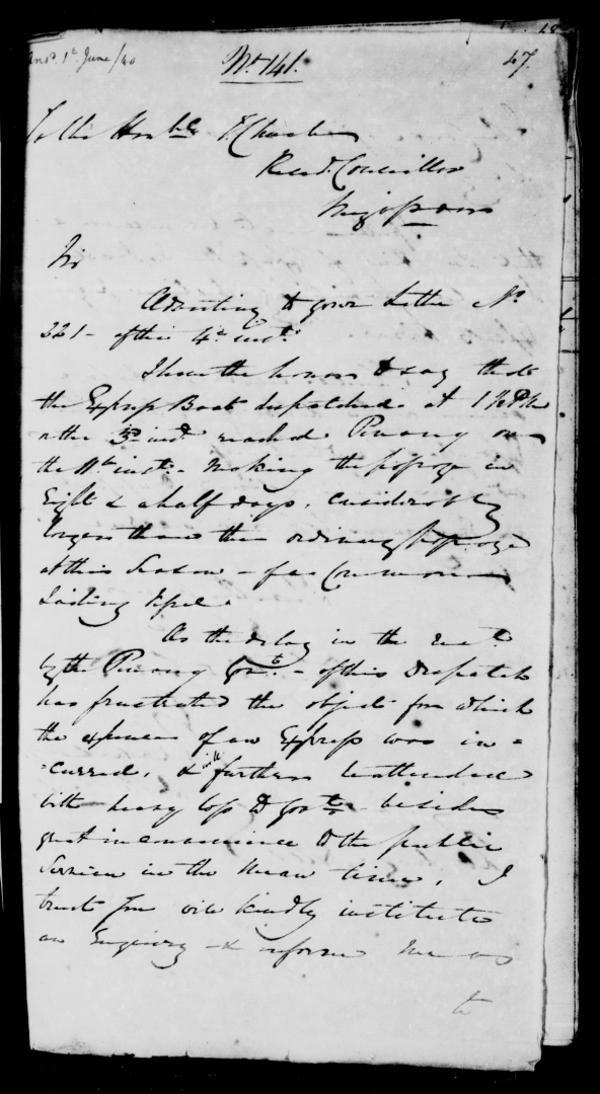 Ans. 1st June/40
No. 141.
47.
To the Honble T Church
Resdt. Councillor
Singapore
Sir
Adverting to your Letter No.
221 - of the 4th inst.
I have the honor to say that
the Express Boat dispatched at 1
the 3rd inst reached Penang on
the 11th inst. - making the passage in
Eight & a half days, considerably
longer than the ordinary passage
at this Season - for a Common
Sailing
As the delay in the
by the Penang Govt. - of this Dispatch
has frustrated the object for which
the expence of an Express was in =
= curred, & will further be attended
with heavy loss to Govt. besides
great inconvenience to the public
Service in the mean time, I
trust you will kindly institute
an Enquiry & inform me as
to